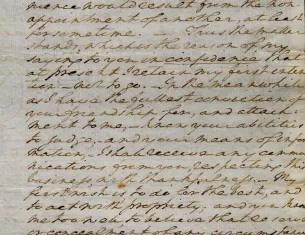 nience would result from the non
appointment of another, at least
for sometime. — Thus the matter
stands, which is the reason of my
saying to you in confidence that
at present I retain my first inten-
tion – not to go. – In the meanwhile
as I have the fullest conviction of
your friendship for, and attach-
ment to me, – know your abilities
to judge, – and your means of infor-
mation, I shall receive any commu-
nications from you, respecting this
business, with thankfulness. – My
first wish is to do for the best, and
to act with propriety; and you know
me too well, to believe that reserve
or concealment of any circumstance